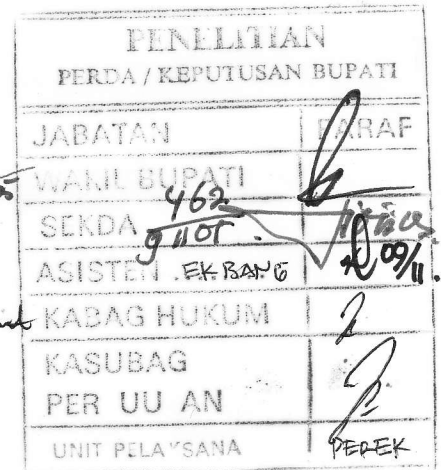 PENELITIAN
PERDA / KEPUTUSAN BUPATI
JABATAN PARAF
WAKIL BUPATI
462
SEKDA
9 11 05
ASISTEN . EKBANG 09/11.
KABAG HUKUM
KASUBAG
PER UU AN
UNIT PELAKSANA PEREK